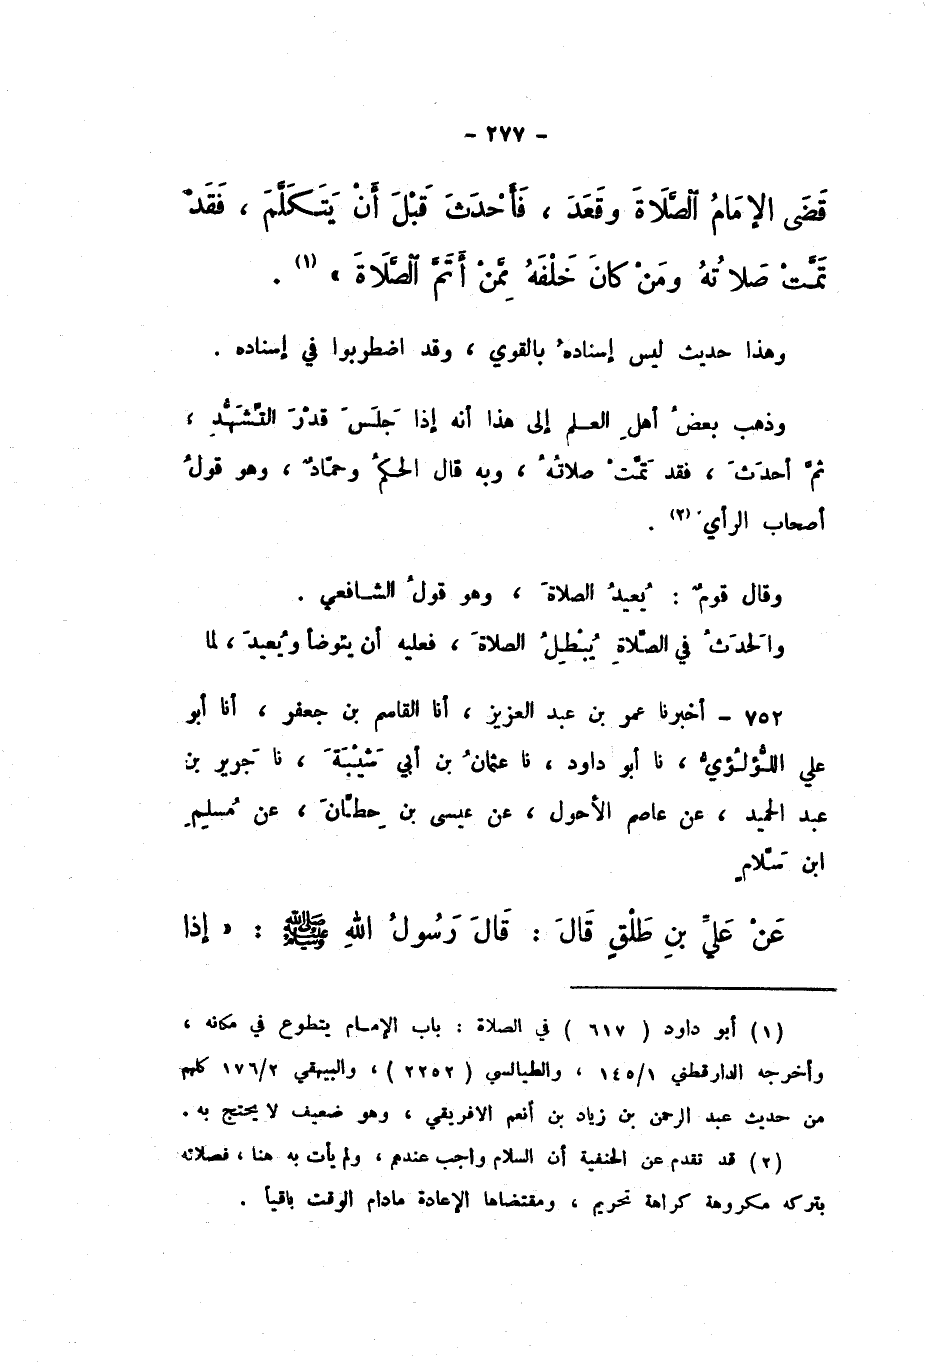 - ٢٧٧ -
قَضَى الإِمَامُ الصَّلَاةَ وقَعَدَ ، فَأَحْدَثَ قَبْلَ أَنْ يَتَـكَلَّمَ ، فَقَدْ
تَمَّتْ صَلاتُهُ ومَنْ كانَ خَلْفَهُ مِمَّنْ أَتَمَّ الصَّلَاةَ » (١) .
وهذا حديث ليس إسنادهُ بالقوي ، وقد اضطوبوا في إسناده .
وذهب بعضُ أهلِ العـلم إلى هذا أنه إذا جَلَسَ قدْرَ التَّشَهُّدِ ،
ثمَّ أحدَثَ ، فقد تَمَّتْ صلاتُهُ ، وبه قال الحكمُ وحمّادٌ ، وهو قولُ
أصحاب الرأي (٢) .
وقال قومٌ : يُعيدُ الصلاةَ ، وهو قولُ الشـافعي .
والحَدَثُ في الصّلاةِ يُبْطِلُ الصلاةَ ، فعليه أن يتوضأ ويُعيدَ ، لما
٧٥٢ - أخبرنا عمر بن عبد العزيز ، أنا القاسم بن جعفر ، أنا أبو
علي اللُّؤلُؤيُّ ، نا أبو داود ، نا عثمانُ بن أبي شَيْبَةَ ، نا جَرير بن
عبد الحميد ، عن عاصم الأحول ، عن عيسى بن حِطّانَ ، عن مُسلِمِ
ابن سَلّامٍ
عَنْ عَلِيِّ بنِ طَلْقٍ قَالَ : قَالَ رَسُولُ اللهِ ﷺ : « إذا
(١) أبو داود ( ٦١٧ ) في الصلاة : باب الإمـام يتطوع في مكانه ،
وأخرجه الدارقطني ١٤٥/١ ، والطيالسي ( ٢٢٥٢ ) ، والبيهقي ١٧٦/٢ كلهم
من حديث عبد الرحمن بن زياد بن أنعم الافريقي ، وهو ضعيف لا يحتج به .
(٢) قد تقدم عن الحنفية أن السلام واجب عندهم ، ولم يأت به هنا ، فصلاته
بتركه مكروهة كراهة تحريم ، ومقتضاها الإعادة مادام الوقت باقياً .